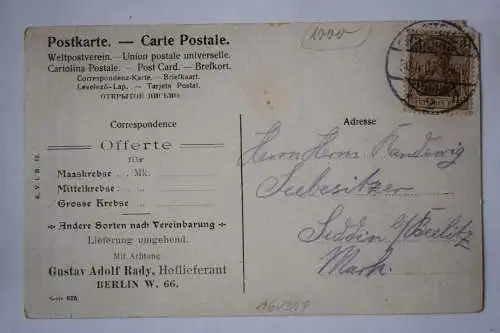 Postkarte. — Carte Postale.
Weltpostverein. — Union postale universelle.
Cartolina Postale. — Post Card. — Brefkort.
Correspondenz-Karte. — Briefkaart.
Levelező-Lap. — Tarjeta Postal.
ОТКРЫТОЕ ПИСЬМО
1000
Correspondence
Offerte
für
Maaskrebse . . Mk.
Mittelkrebse . . „
Grosse Krebse „
Andere Sorten nach Vereinbarung
Lieferung umgehend.
Mit Achtung
Gustav Adolf Rady, Hoflieferant
BERLIN W. 66.
Adresse
Herrn Herm.
Seebesitzer
Seddin b/Beelitz
Mark.